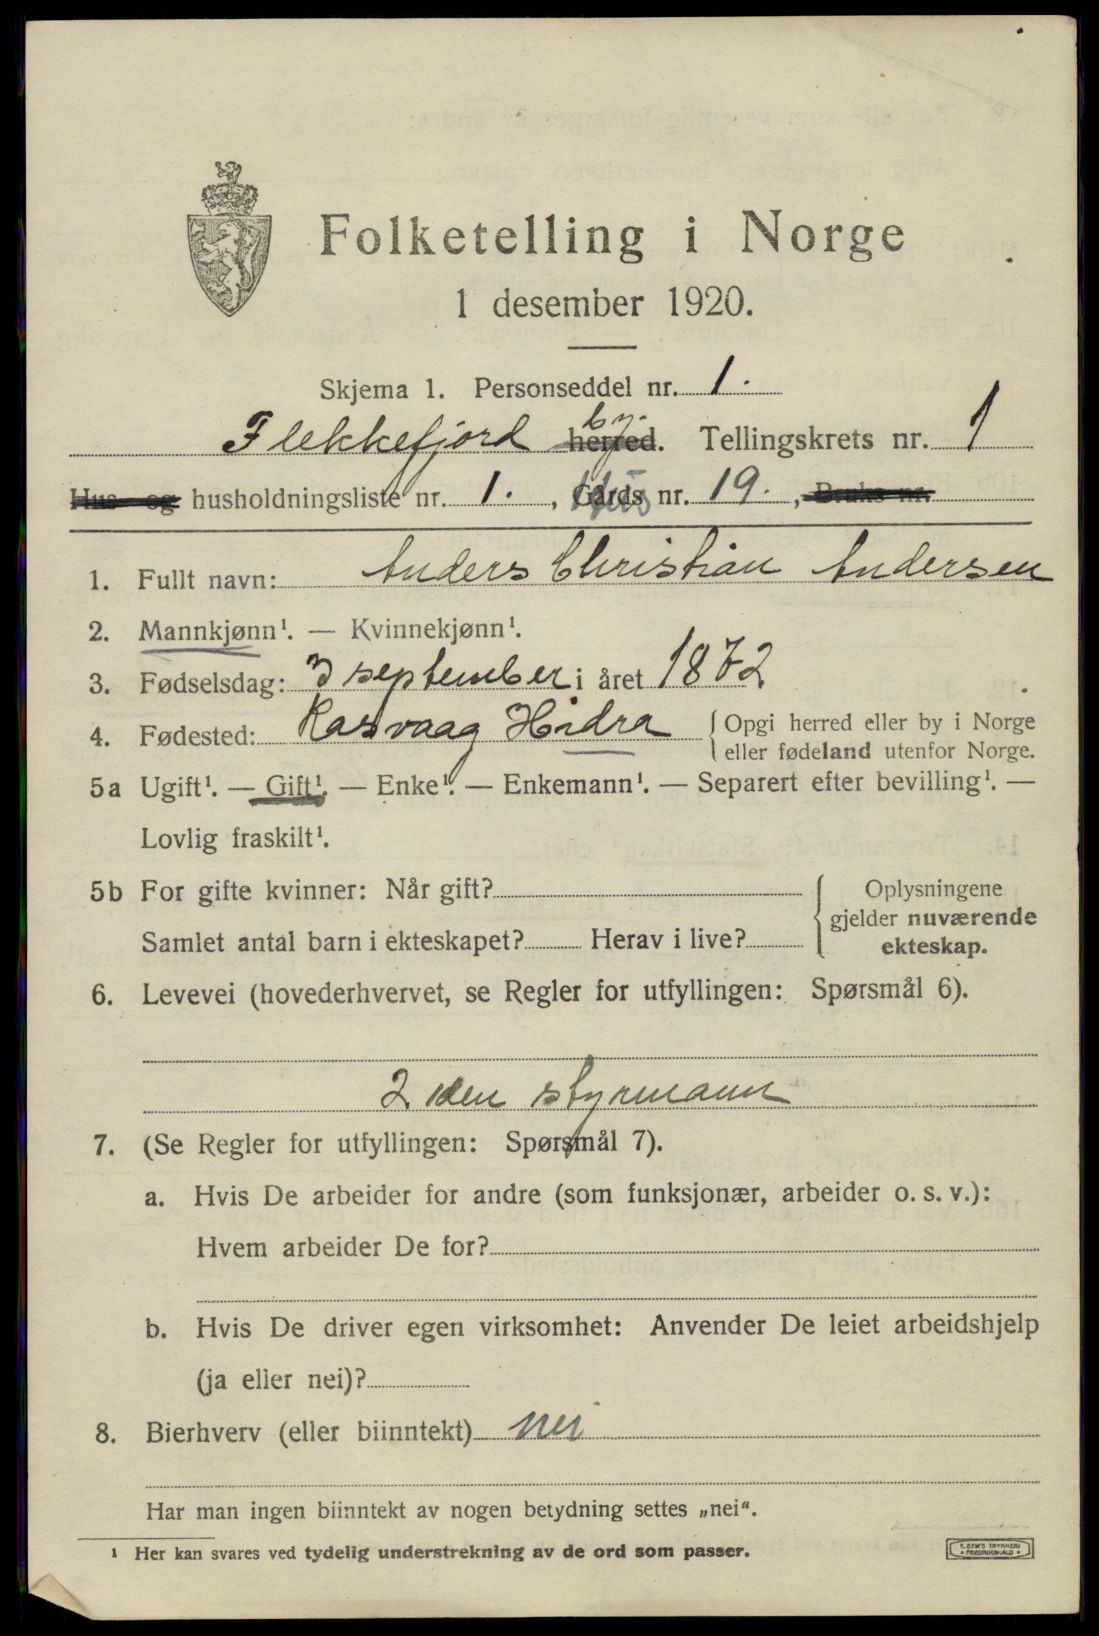 Folketelling i Norge
1 desember 1920.
Skjema 1. Personseddel nr. 1.
Flekkefjord herred. by. Tellingskrets nr. 1
Hus- og husholdningsliste nr. 1., Gårds Hus nr. 19., Bruks nr.
1. Fullt navn: Anders Christian Andersen
2. Mannkjønn¹. — Kvinnekjønn¹.
3. Fødselsdag: 3 september i året 1872
4. Fødested: Rasvaag Hidra {Opgi herred eller by i Norge
eller fødeland utenfor Norge.
5a Ugift¹. — Gift¹. — Enke¹. — Enkemann¹. — Separert efter bevilling¹. —
Lovlig fraskilt¹.
5b For gifte kvinner: Når gift? { Oplysningene
gjelder nuværende
Samlet antal barn i ekteskapet? Herav i live? ekteskap.
6. Levevei (hovederhvervet, se Regler for utfyllingen: Spørsmål 6).
2 den styrmann
7. (Se Regler for utfyllingen: Spørsmål 7).
a. Hvis De arbeider for andre (som funksjonær, arbeider o. s. v.):
Hvem arbeider De for?
b. Hvis De driver egen virksomhet: Anvender De leiet arbeidshjelp
(ja eller nei)?
8. Bierhverv (eller biinntekt) nei
Har man ingen biinntekt av nogen betydning settes „nei“.
¹ Her kan svares ved tydelig understrekning av de ord som passer.